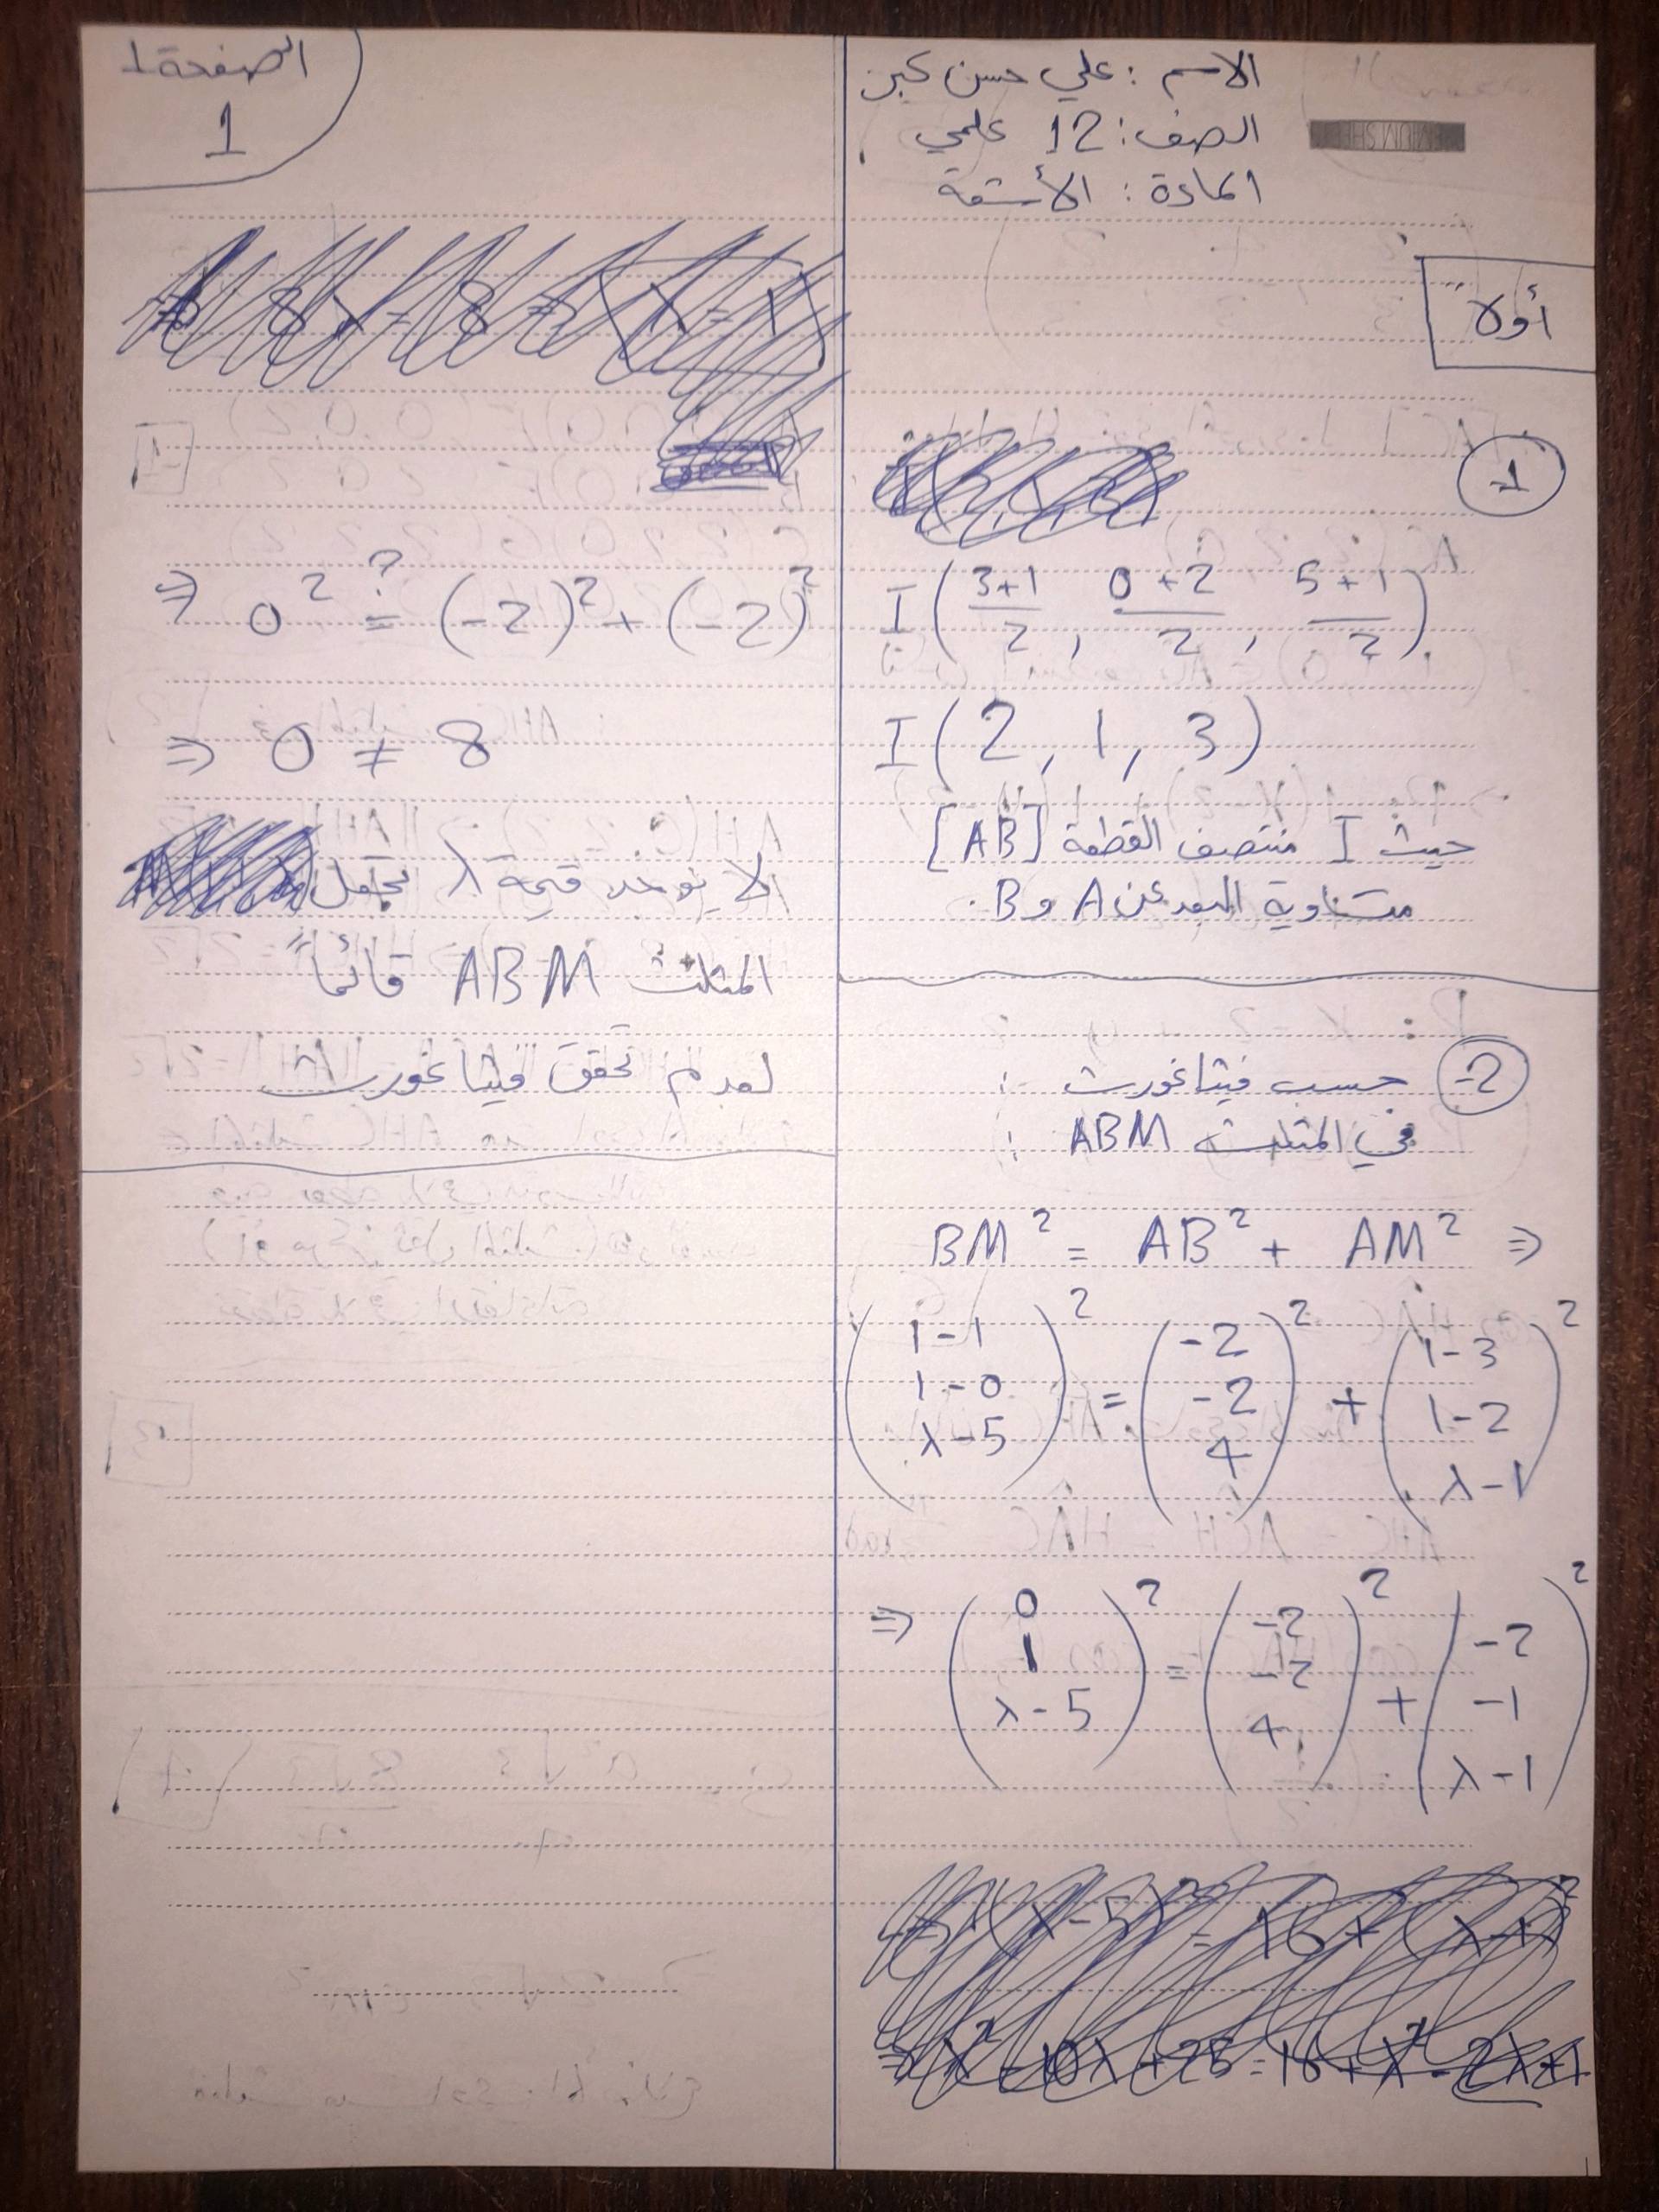 الاسم : علي حسن كبر
الصف : 12 علمي
المادة : الأشعة
الصفحة 1
1
أولاً
1-
I ( 3+1 / 2 , 0+2 / 2 , 5+1 / 2 )
I ( 2 , 1 , 3 )
حيث I منتصف القطعة [AB]
متساوية البعد عن A و B .
2- حسب فيتاغورث :
في المثلث ABM :
BM² = AB² + AM² ⇒
( 1-1 1-0 λ-5 )² = ( -2 -2 4 )² + ( 1-3 1-2 λ-1 )²
⇒ ( 0 1 λ-5 )² = ( -2 -2 4 )² + ( -2 -1 λ-1 )²
⇒ λ² - 10λ + 25 = 16 + λ² - 2λ + 1
⇒ 8λ = 8 ⇒ λ = 1
⇒ 0² ≟ (-2)² + (-2)²
⇒ 0 ≠ 8
لا يوجد قيمة λ تجعل
المثلث ABM قائماً
لعدم تحقق فيتاغورث